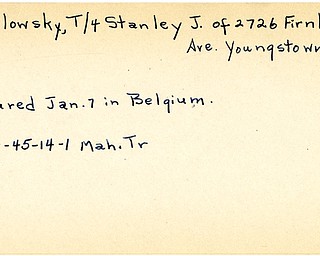 lowsky, T/4 Stanley J. of 2726 Firnl
Ave. Youngstown
ared Jan. 7 in Belgium.
-45-14-1 Mah. Tr